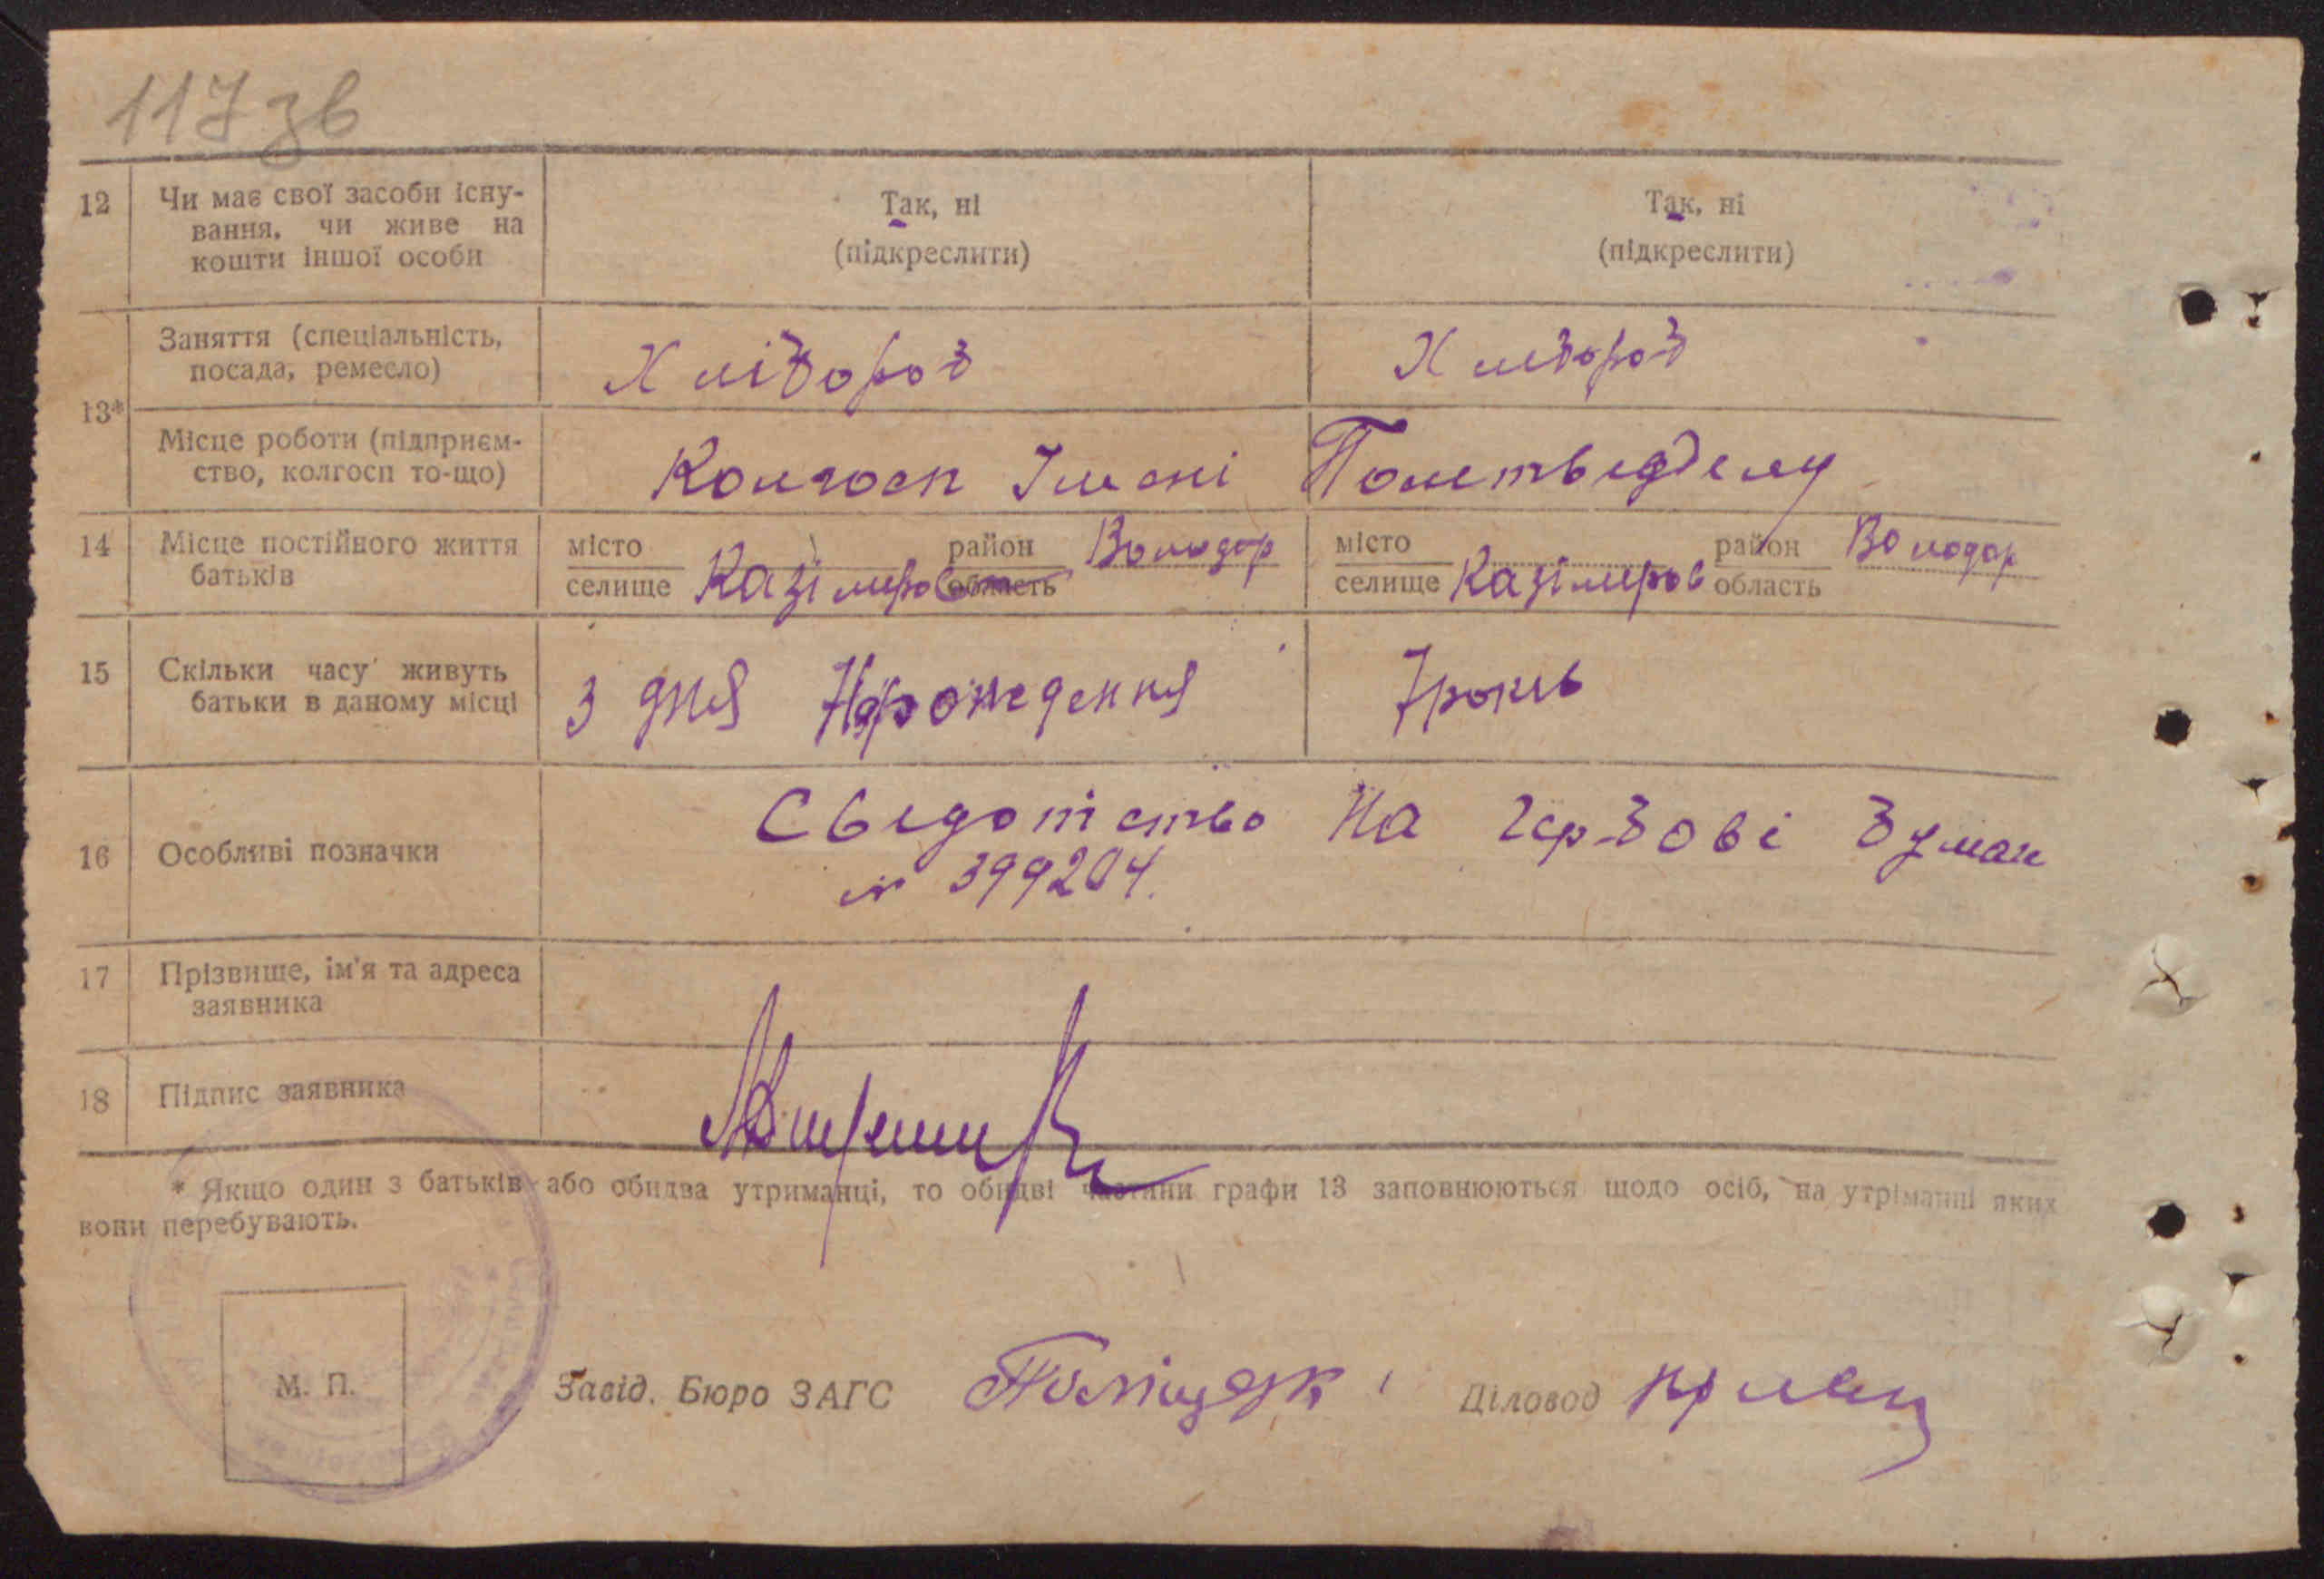 117 зв
12 Чи має свої засоби існу-
вання, чи живе на
кошти іншої особи
Так, ні
(підкреслити)
Так, ні
(підкреслити)
13*
Заняття (спеціальність,
посада, ремесло)
Хлібороб
Хлебороб
Місце роботи (підприєм-
ство, колгосп то-що)
Колгосп Імені Полетведделу
14 Місце постійного життя
батьків
місто
селище
Казімиров
район
область
Володар
місто
селище
Казімиров
район
область
Володар
15 Скільки часу живуть
батьки в даному місці
З дня Нарождення
7 років
16 Особливі позначки
Сведотство На гербові Бумаги
№ 399204.
17 Прізвище, ім'я та адреса
заявника
18 Підпис заявника
* Якщо один з батьків або обидва утриманці, то обидві частини графи 13 заповнюються щодо осіб, на утріманні яких
вони перебувають.
М. П.
Завід. Бюро ЗАГС
Діловод